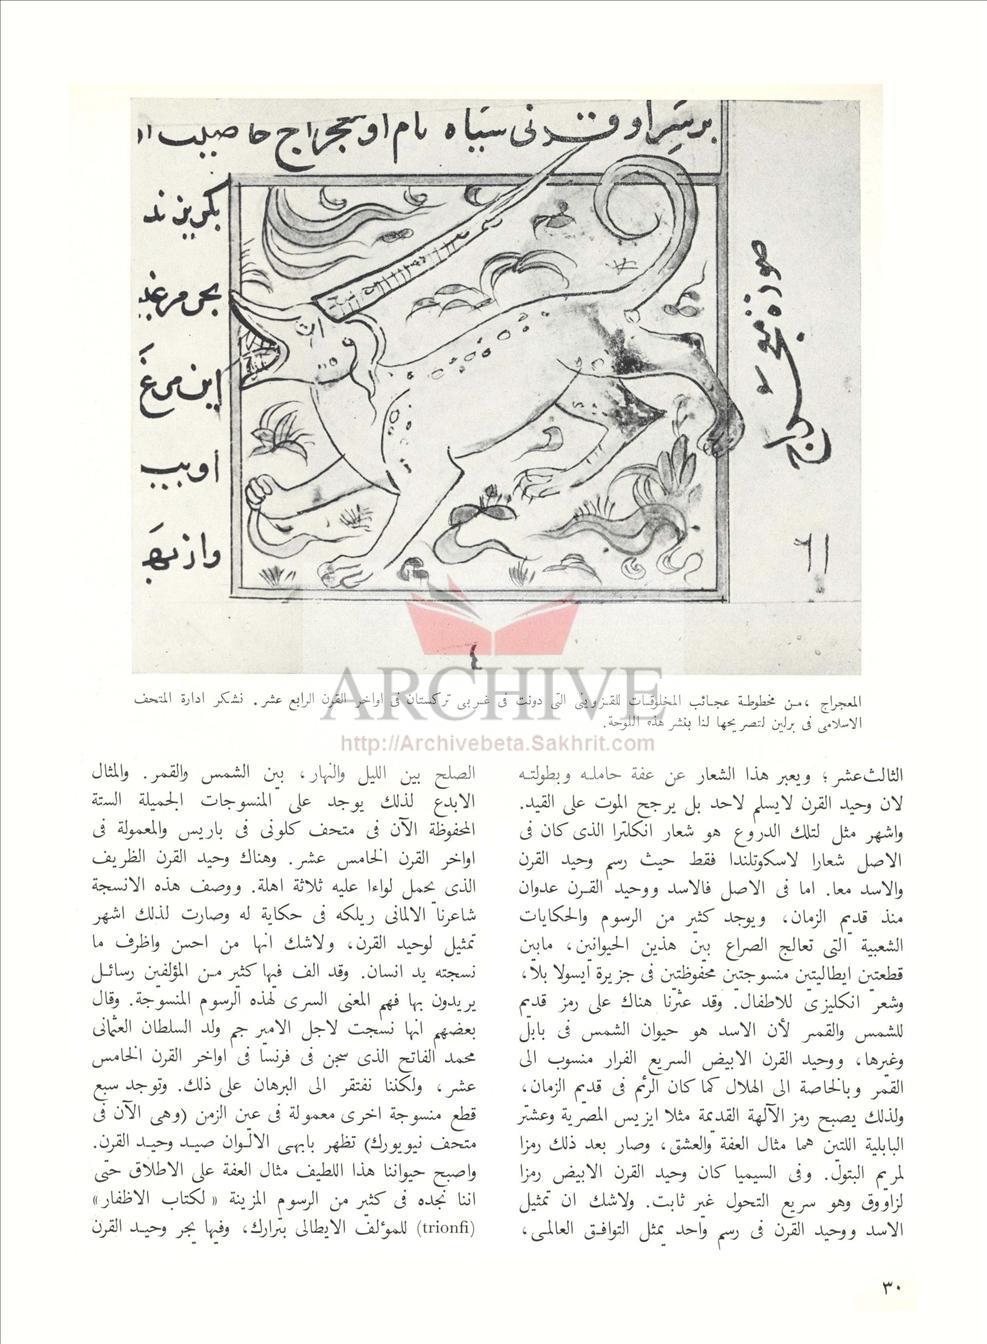 بر سر او قرنی سیاه نام او معجراج
بکریزند
این مرغ
صورة معراج
٤
المعجراج ، من مخطوطة عجائب المخلوقات للقزوينى التى دونت فى غربى تركستان فى اواخر القرن الرابع عشر. نشكر ادارة المتحف
الاسلامى فى برلين لتصريحها لنا بنشر هذه اللوحة.
ARCHIVE
http://Archivebeta.Sakhrit.com
الثالث عشر ؛ ويعبر هذا الشعار عن عفة حاملـه وبطولتـه
لان وحيد القرن لايسلم لاحد بل يرجح الموت على القيد.
واشهر مثل لتلك الدروع هو شعار انكلترا الذى كان فى
الاصل شعارا لاسكوتلندا فقط حيث رسم وحيد القرن
والاسد معا. اما فى الاصل فالاسد ووحيد القـرن عدوان
منذ قديم الزمان، ويوجد كثير من الرسوم والحكايات
الشعبية التى تعالج الصراع بين هذين الحيوانين، مابين
قطعتين ايطاليتين منسوجتين محفوظتين فى جزيرة ايسولا بلا،
وشعر انكليزى للاطفال. وقد عثرنا هناك على رمز قديم
للشمس والقمـر لأن الاسد هو حيوان الشمس فى بابل
وغيرها، ووحيد القرن الابيض السريع الفرار منسوب الى
القمر وبالخاصة الى الهلال كما كان الرئم فى قديم الزمان،
ولذلك يصبح رمز الآلهة القديمة مثلا ايزيس المصرية وعشتر
البابلية اللتين هما مثال العفة والعشق، وصار بعد ذلك رمزا
لمريم البتول. وفى السيميا كان وحيد القرن الابيض رمزا
لزاووق وهو سريع التحول غير ثابت. ولاشك ان تمثيل
الاسد ووحيد القرن فى رسم واحد يمثل التوافـق العالمـى،
الصلح بين الليل والنهار، بين الشمس والقمر. والمثال
الابدع لذلك يوجد على المنسوجات الجميلة الستة
المحفوظة الآن فى متحف كلونى فى باريس والمعمولة فى
اواخر القرن الخامس عشر. وهناك وحيد القرن الظريف
الذى يحمل لواءا عليه ثلاثة اهلة. ووصف هذه الانسجة
شاعرنا الالمانى ريلكه فى حكاية له وصارت لذلك اشهر
تمثيل لوحيد القرن، ولاشك انها من احسن واظرف ما
نسجته يد انسان. وقد الف فيها كثير مـن المؤلفين رسائـل
يريدون بها فهم المعنى السرى لهذه الرسوم المنسوجة. وقال
بعضهم انها نسجت لاجل الامير جم ولد السلطان العثمانى
محمد الفاتح الذى سجن فى فرنسا فى اواخر القرن الخامس
عشر، ولكننا نفتقر الى البرهان على ذلك. وتوجد سبع
قطع منسوجة اخرى معمولة فى عين الزمن (وهى الآن فى
متحف نيويورك) تظهر بابهى الالـوان صيـد وحيـد القرن.
واصبح حيواننا هذا اللطيف مثال العفة على الاطلاق حتى
اننا نجده فى كثير من الرسوم المزينة « لكتاب الاظفار»
(trionfi) للمؤلف الايطالى بترارك، وفيها يجر وحيـد القرن
٣٠